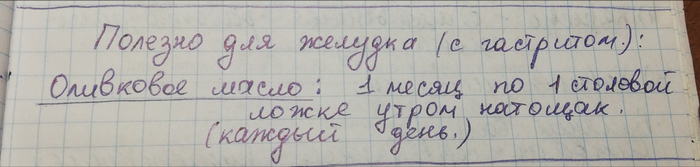 Полезно для желудка (с гастритом.):
Оливковое масло: 1 месяц по 1 столовой
ложке утром натощак.
(каждый день.)